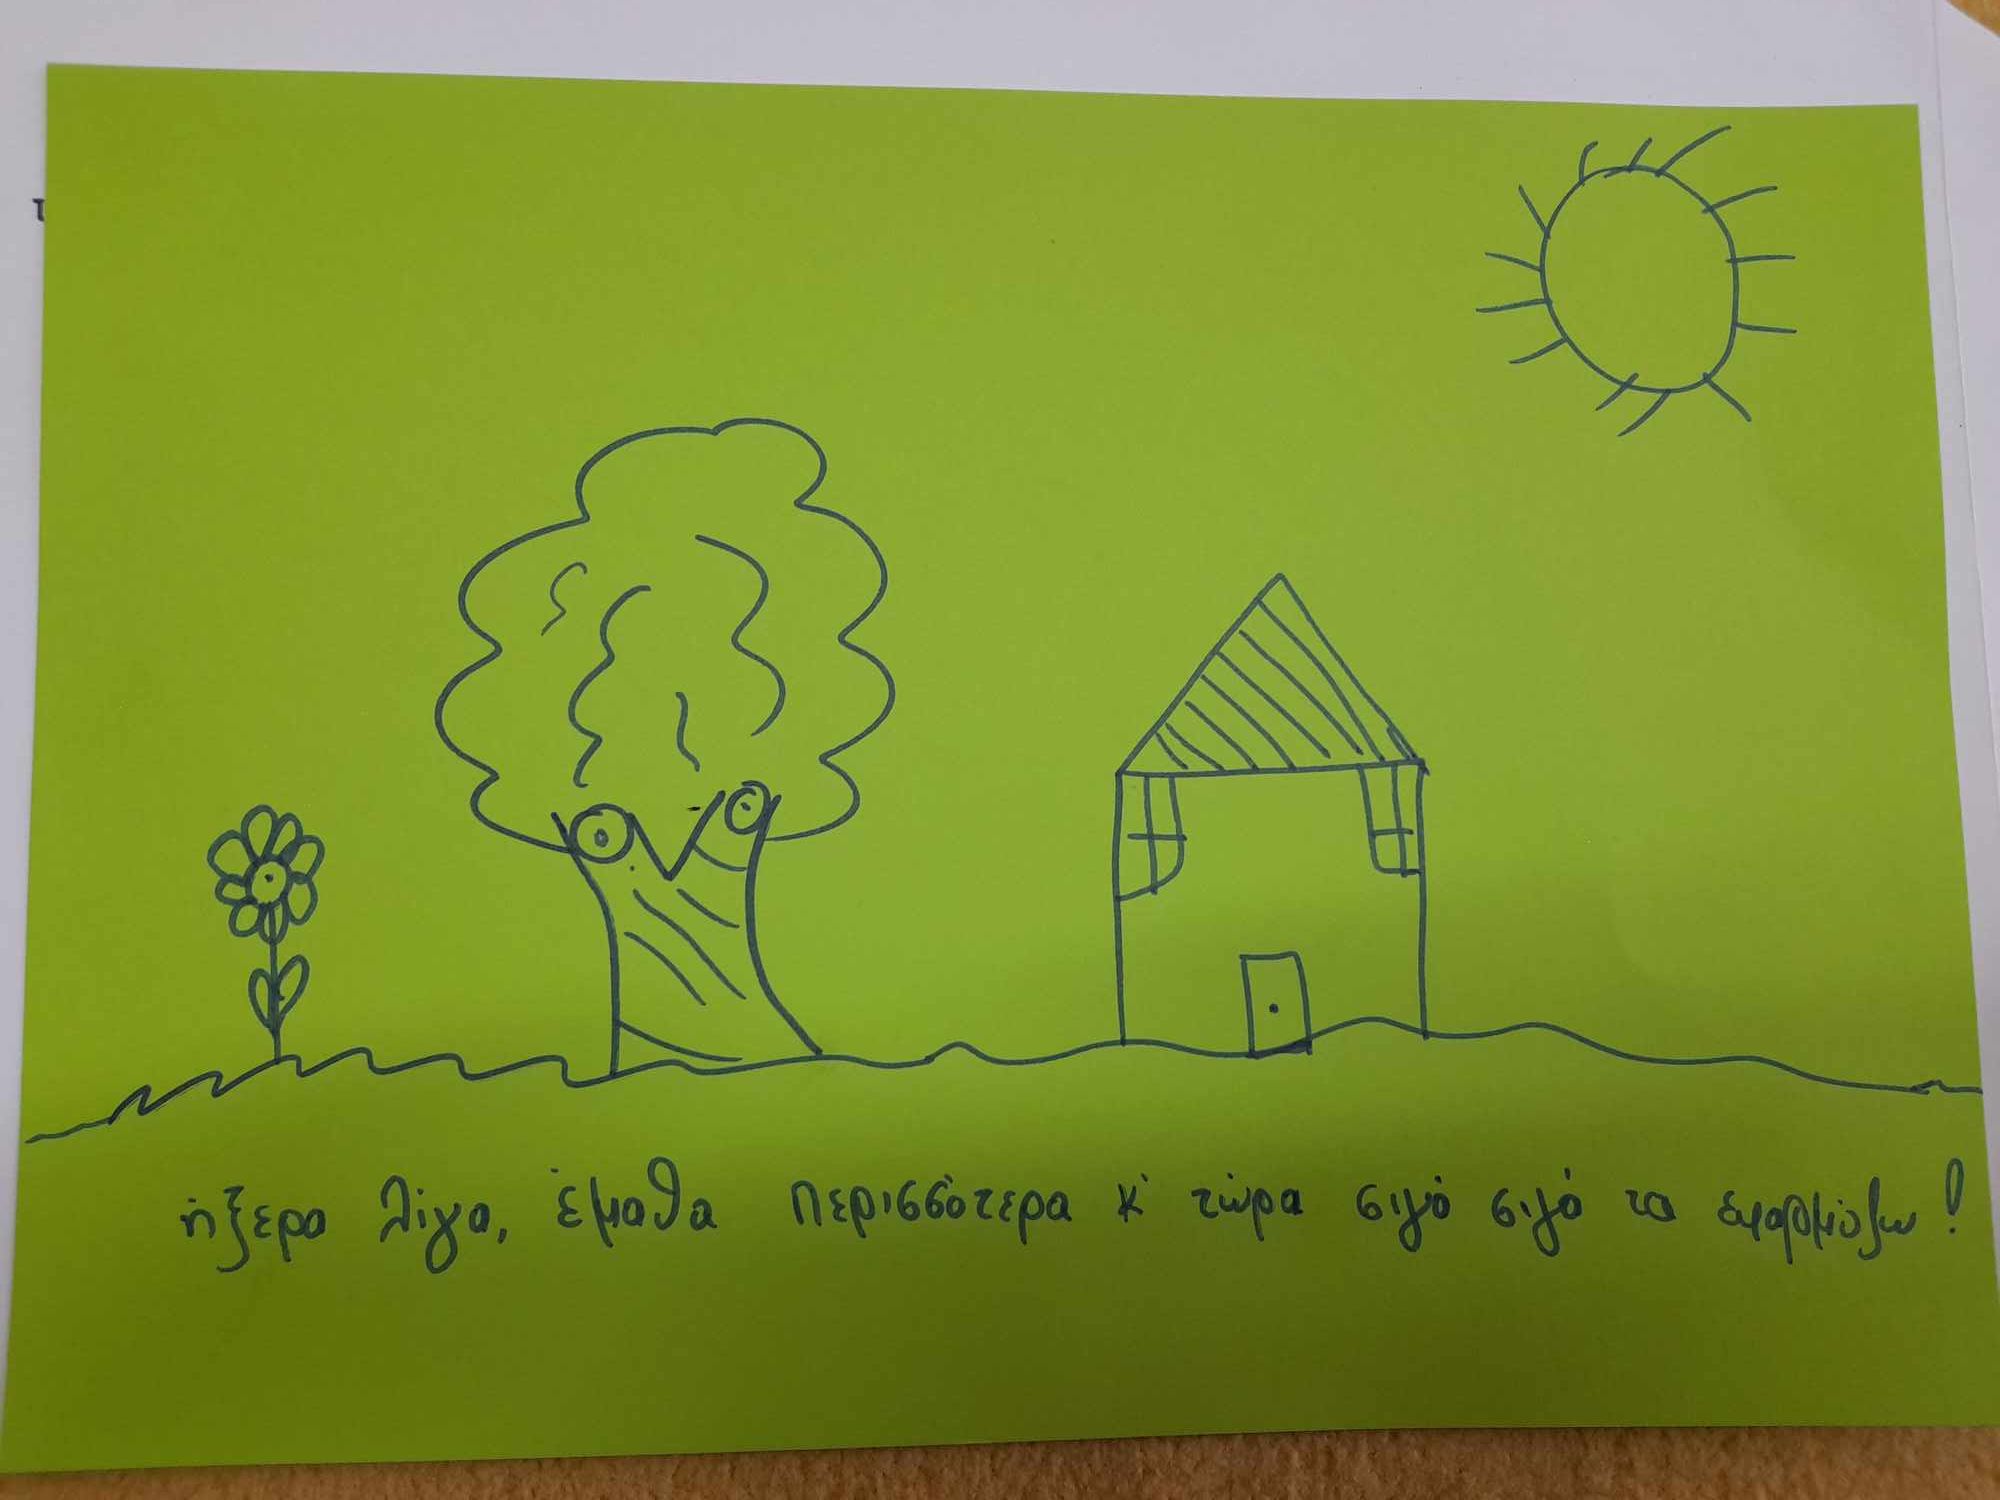 τ
ήξερα λίγα, έμαθα περισσότερα κ' τώρα σιγά σιγά τα εφαρμόζω!